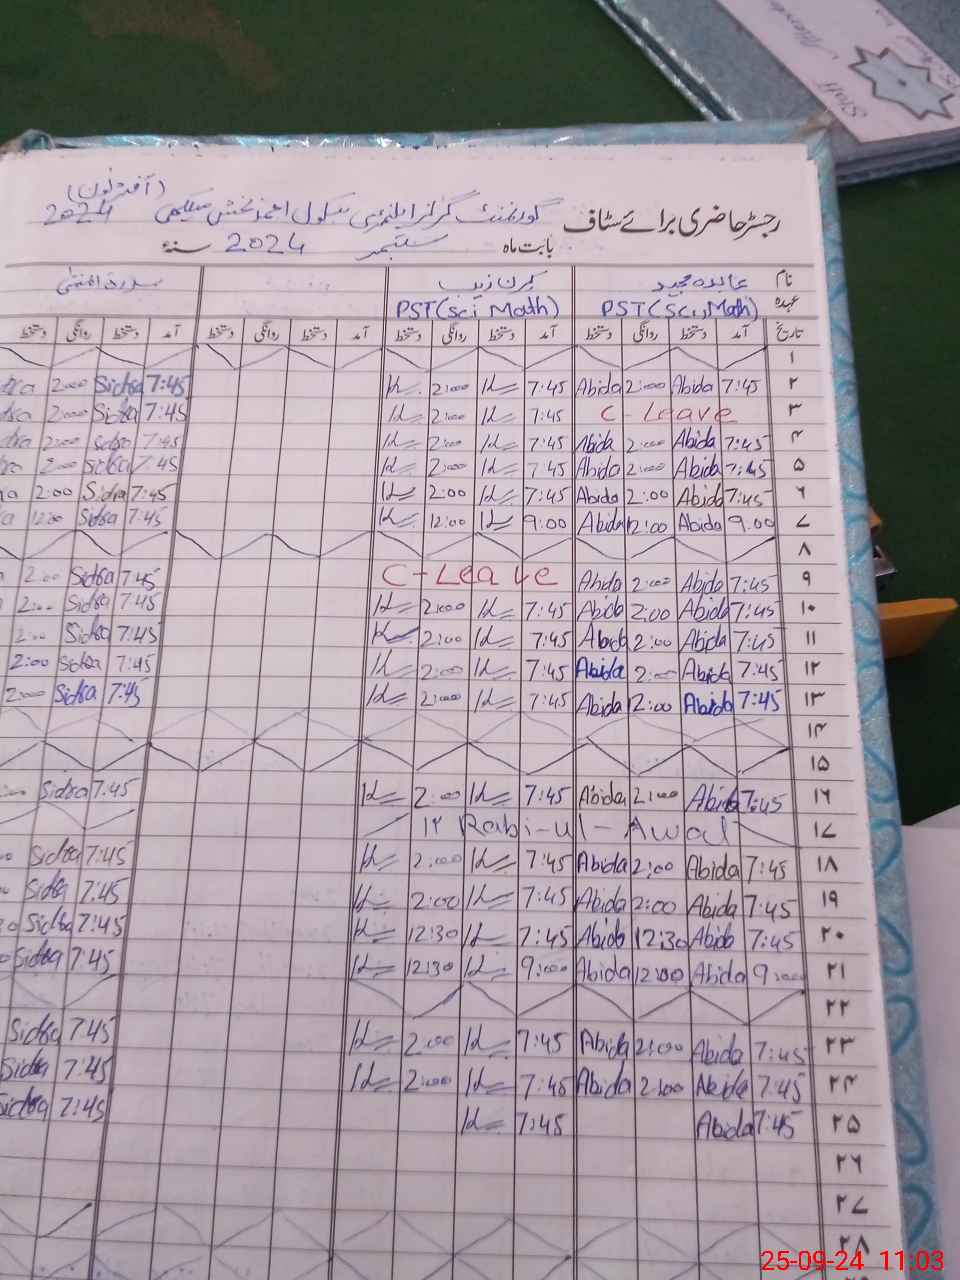 Staff
رجسٹر حاضری برائے سٹاف گورنمنٹ گرلز ایلیمنٹری سکول احمد بخش 2024
بابت ماہ ستمبر 2024 سنہء
نام عابدہ مجید کرن زیب
عہدہ PST(Sci,Math) PST(Sci Math)
تاریخ آمد دستخط روانگی دستخط آمد دستخط روانگی دستخط آمد دستخط روانگی دستخط آمد دستخط روانگی دستخط
۱
۲ 7:45 Abida 2:00 Abida 7:45 2:00 7:45 Sidra 2:00
۳ C-Leave 7:45 2:00 7:45 Sidra 2:00
۴ 7:45 Abida 2:00 Abida 7:45 2:00 7:45 Sidra 2:00
۵ 7:45 Abida 2:00 Abida 7:45 2:00 7:45 Sidra 2:00
۶ 7:45 Abida 2:00 Abida 7:45 2:00 7:45 Sidra 2:00
۷ 9:00 Abida 12:00 Abida 9:00 12:00 7:45 Sidra 12:00
۸
۹ 7:45 Abida 2:00 Abida C-Leave 7:45 Sidra 2:00
۱۰ 7:45 Abida 2:00 Abida 7:45 2:00 7:45 Sidra 2:00
۱۱ 7:45 Abida 2:00 Abida 7:45 2:00 7:45 Sidra 2:00
۱۲ 7:45 Abida 2:00 Abida 7:45 2:00 7:45 Sidra 2:00
۱۳ 7:45 Abida 2:00 Abida 7:45 2:00 7:45 Sidra 2:00
۱۴
۱۵
۱۶ 7:45 Abida 2:00 Abida 7:45 2:00 7:45 Sidra
۱۷ ۱۲ Rabi-ul-Awal
۱۸ 7:45 Abida 2:00 Abida 7:45 2:00 7:45 Sidra
۱۹ 7:45 Abida 2:00 Abida 7:45 2:00 7:45 Sidra
۲۰ 7:45 Abida 12:30 Abida 7:45 12:30 7:45 Sidra
۲۱ 9:00 Abida 12:00 Abida 9:00 12:30 7:45 Sidra
۲۲
۲۳ 7:45 Abida 2:00 Abida 7:45 2:00 7:45 Sidra
۲۴ 7:45 Abida 2:00 Abida 7:45 2:00 7:45 Sidra
۲۵ 7:45 Abida 7:45 7:45 Sidra
۲۶
۲۷
۲۸
25-09-24 11:03